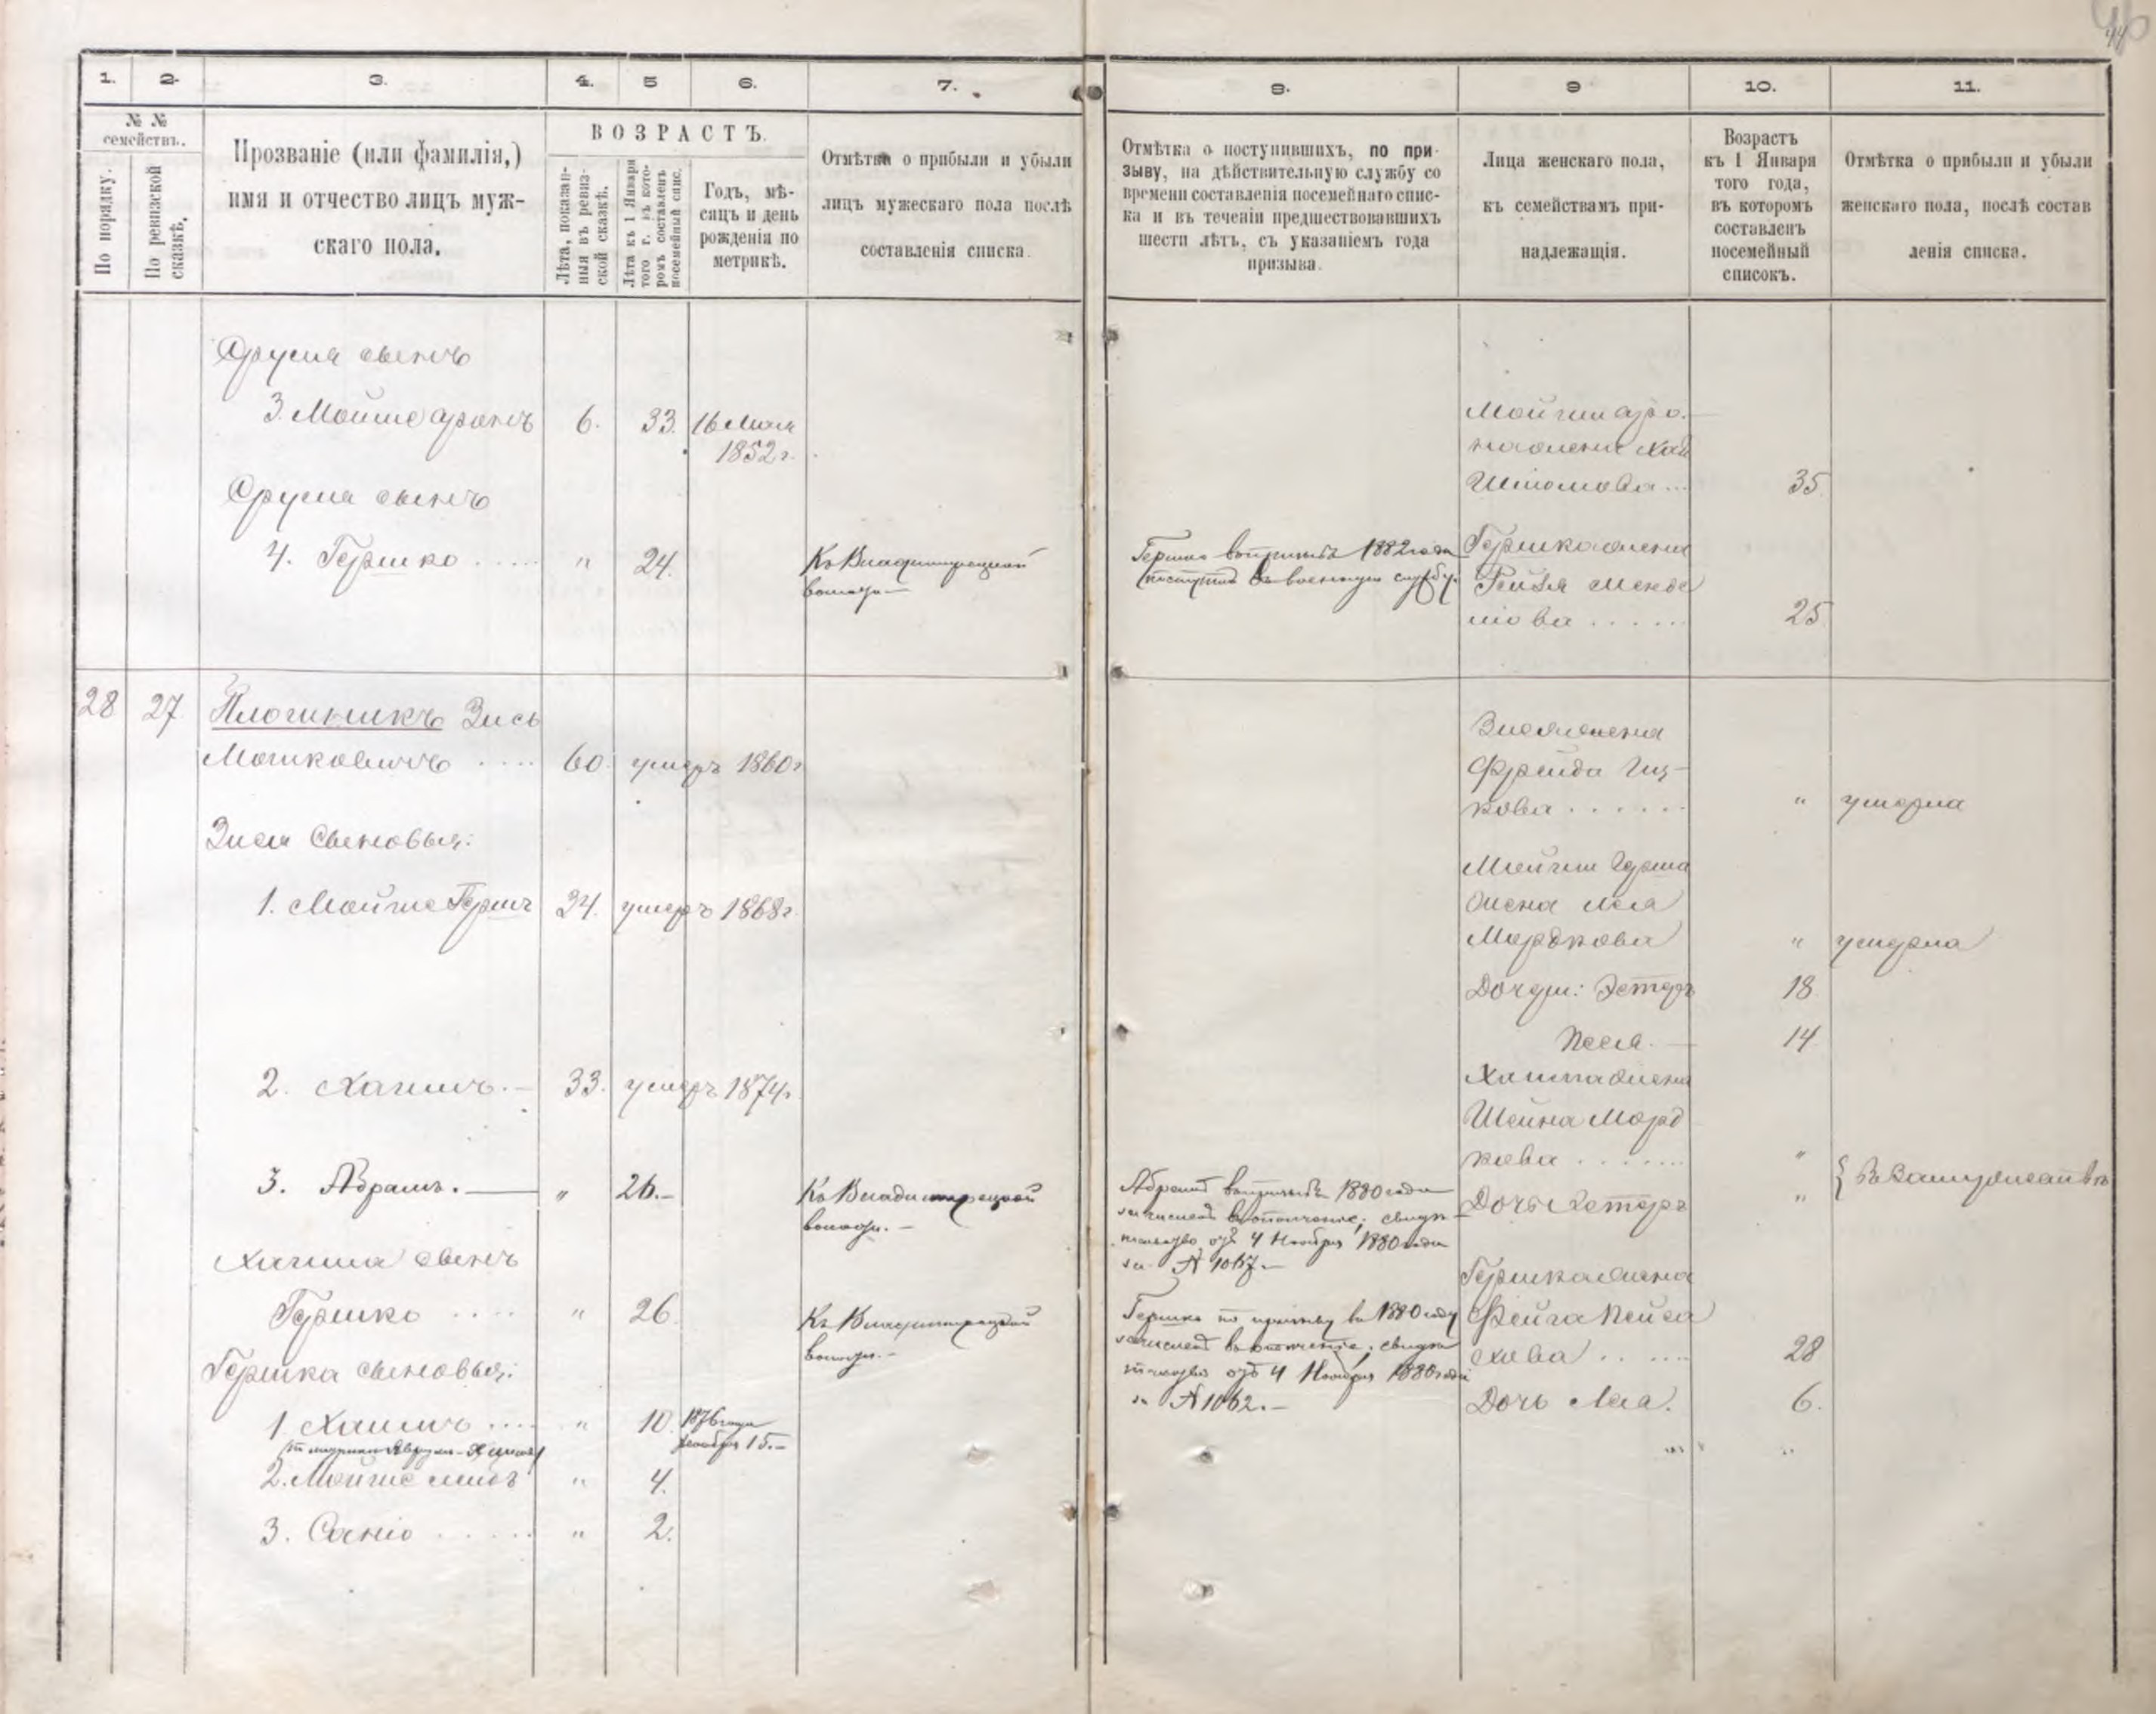 46
44
1.
2.
3.
4.
5
6.
7.
8.
9
10.
11.
№ №
семействъ.
По порядку.
По ревизской
сказкѣ.
Прозваніе (или фамилія,)
имя и отчество лицъ муж-
скаго пола.
ВОЗРАСТЪ.
Лѣта, показан-
ныя въ ревиз-
ской сказкѣ.
Лѣта къ 1 Января
того г. въ кото-
ромъ составленъ
посемейный спис.
Годъ, мѣ-
сяцъ и день
рожденія по
метрикѣ.
Отмѣтка о прибыли и убыли
лицъ мужескаго пола послѣ
составленія списка.
Отмѣтка о поступившихъ, по при-
зыву, на дѣйствительную службу со
времени составленія посемейнаго спис-
ка и въ теченіи предшествовавшихъ
шести лѣтъ, съ указаніемъ года
призыва.
Лица женскаго пола,
къ семействамъ при-
надлежащія.
Возрастъ
къ 1 Января
того года,
въ которомъ
составленъ
посемейный
списокъ.
Отмѣтка о прибыли и убыли
женскаго пола, послѣ состав
ленія списка.
Сруля сынъ
3. Мойше Аронъ 6. 33. 16 Мая
1852 г.
Мойши Аро-
на жена Хая
Шлiомова... 35
Сруля сынъ
4. Гершко ..... " 24. Къ Владимирецкой
волости
Гершко въ призывъ 1882 года
поступилъ въ военную службу.
Гершка жена
Рейзя Менде
лiова ...... 25
28 27 Плотникъ Зись
Мошковичъ .... 60. умеръ 1860 г
Зися жена
Фрейда Иц-
кова ...... " умерла
Зися Сыновья:
1. Мойше Гершъ 24. умеръ 1868 г.
Мойши Герша
жена Лея
Мордкова " умерла
Дочери: Эстеръ 18
Песя. 14
2. Хаимъ. 33. умеръ 1874 г.
Хаима жена
Шейна Морд
кова ....... "
Дочь Эстеръ "
{ Въ замужествѣ
3. Абрамъ. " 26. Къ Владимирецкой
волости.
Абрамъ въ призывъ 1880 года
зачисленъ въ ополченіе; свидѣ
тельство отъ 4 Ноября 1880 года
за № 1057.
Хаима сынъ
Гершко .... " 26. Къ Владимирецкой
волости.
Гершко по призыву въ 1880 году
зачисленъ въ ополченіе; свидѣ
тельство отъ 4 Ноября 1880 года
за № 1062.
Гершка жена
Фейга Пейса
хова ...... 28
Дочь Лея. 6.
Гершка сыновья:
1. Хаимъ .... " 10. 1876 года
Декабря 15.
2. Мойше " 4.
3. Санiо ..... " 2.